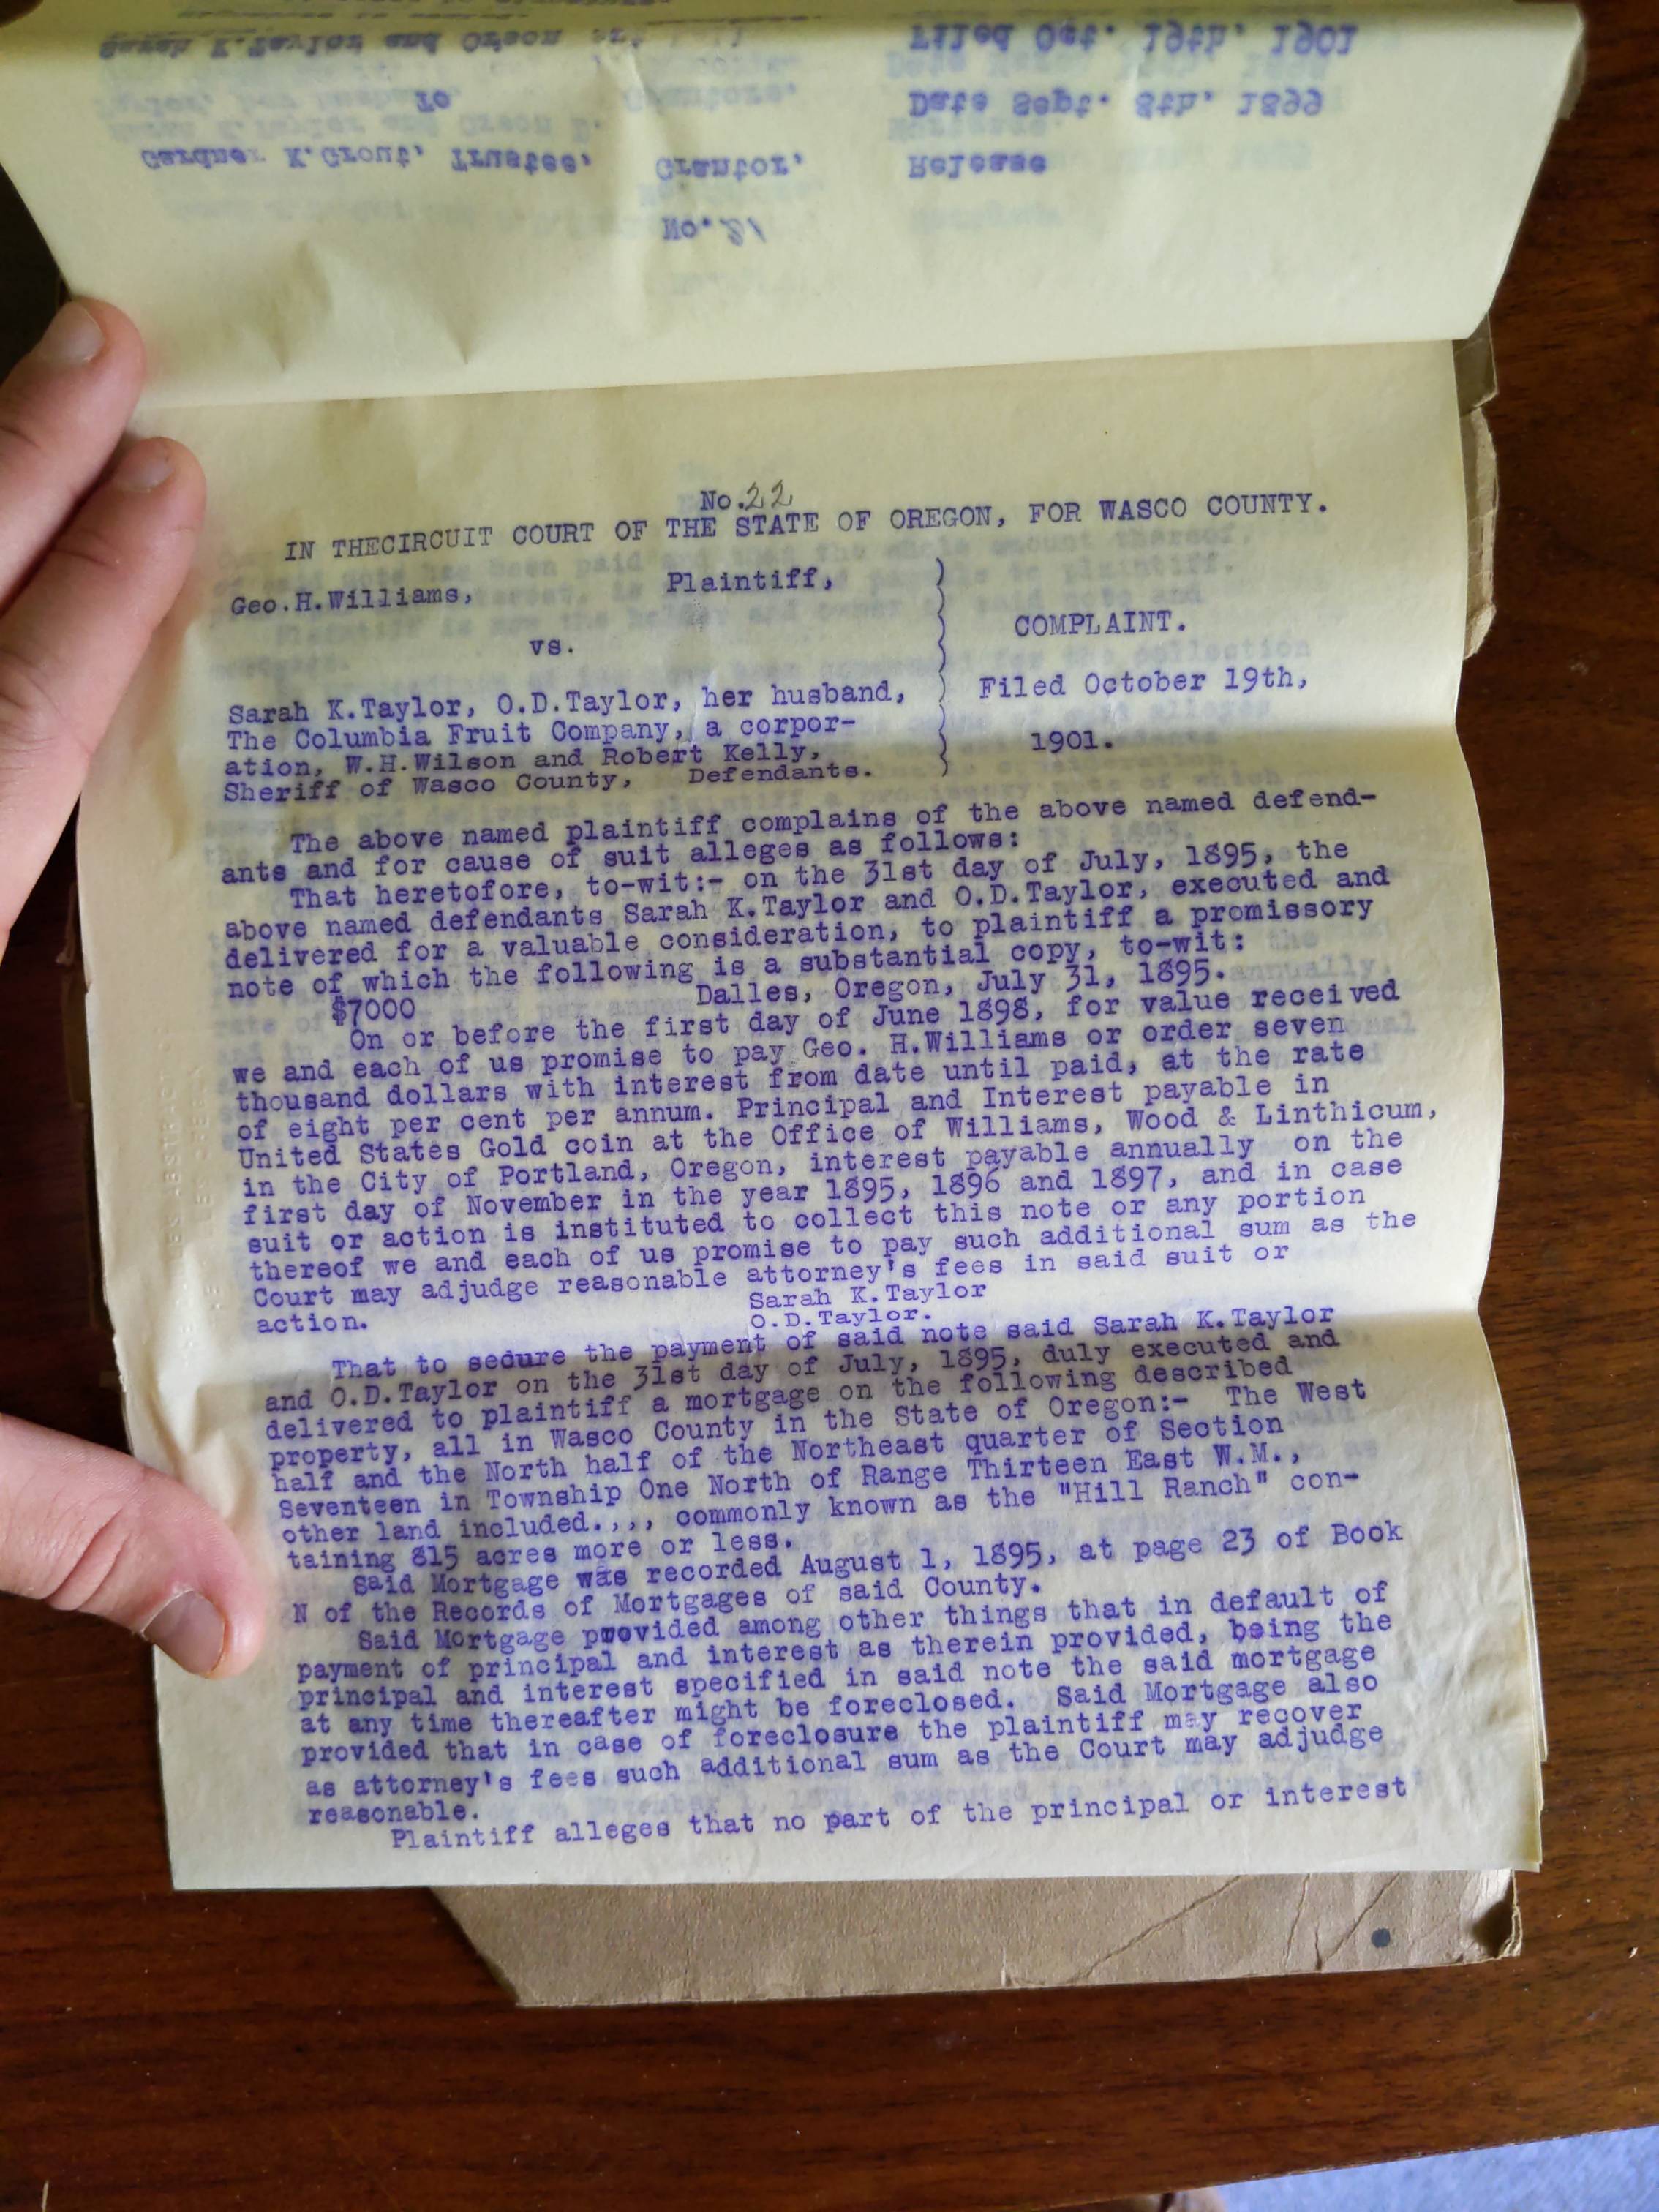 Sarah K.Taylor and Orson
Filed Oct. 19th, 1901
To
Grantors.
Date Sept. 8th, 1899
Gardner K.Grout, Trustee, Grantor, Release
No.21
No.22
IN THECIRCUIT COURT OF THE STATE OF OREGON, FOR WASCO COUNTY.
Geo.H.Williams, Plaintiff,
COMPLAINT.
vs.
Filed October 19th,
Sarah K.Taylor, O.D.Taylor, her husband,
The Columbia Fruit Company, a corpor-
1901.
ation, W.H.Wilson and Robert Kelly,
Sheriff of Wasco County, Defendants.
The above named plaintiff complains of the above named defend-
ants and for cause of suit alleges as follows:
That heretofore, to-wit:- on the 31st day of July, 1895, the
above named defendants Sarah K.Taylor and O.D.Taylor, executed and
delivered for a valuable consideration, to plaintiff a promissory
note of which the following is a substantial copy, to-wit:
$7000 Dalles, Oregon, July 31, 1895.
On or before the first day of June 1898, for value received
we and each of us promise to pay Geo. H.Williams or order seven
thousand dollars with interest from date until paid, at the rate
of eight per cent per annum. Principal and Interest payable in
United States Gold coin at the Office of Williams, Wood & Linthicum,
in the City of Portland, Oregon, interest payable annually on the
first day of November in the year 1895, 1896 and 1897, and in case
suit or action is instituted to collect this note or any portion
thereof we and each of us promise to pay such additional sum as the
Court may adjudge reasonable attorney's fees in said suit or
action. Sarah K.Taylor
O.D.Taylor.
That to secure the payment of said note said Sarah K.Taylor
and O.D.Taylor on the 31st day of July, 1895, duly executed and
delivered to plaintiff a mortgage on the following described
property, all in Wasco County in the State of Oregon:- The West
half and the North half of the Northeast quarter of Section
Seventeen in Township One North of Range Thirteen East W.M.,
other land included.,,, commonly known as the "Hill Ranch" con-
taining 815 acres more or less.
Said Mortgage was recorded August 1, 1895, at page 23 of Book
N of the Records of Mortgages of said County.
Said Mortgage provided among other things that in default of
payment of principal and interest as therein provided, being the
principal and interest specified in said note the said mortgage
at any time thereafter might be foreclosed. Said Mortgage also
provided that in case of foreclosure the plaintiff may recover
as attorney's fees such additional sum as the Court may adjudge
reasonable.
Plaintiff alleges that no part of the principal or interest